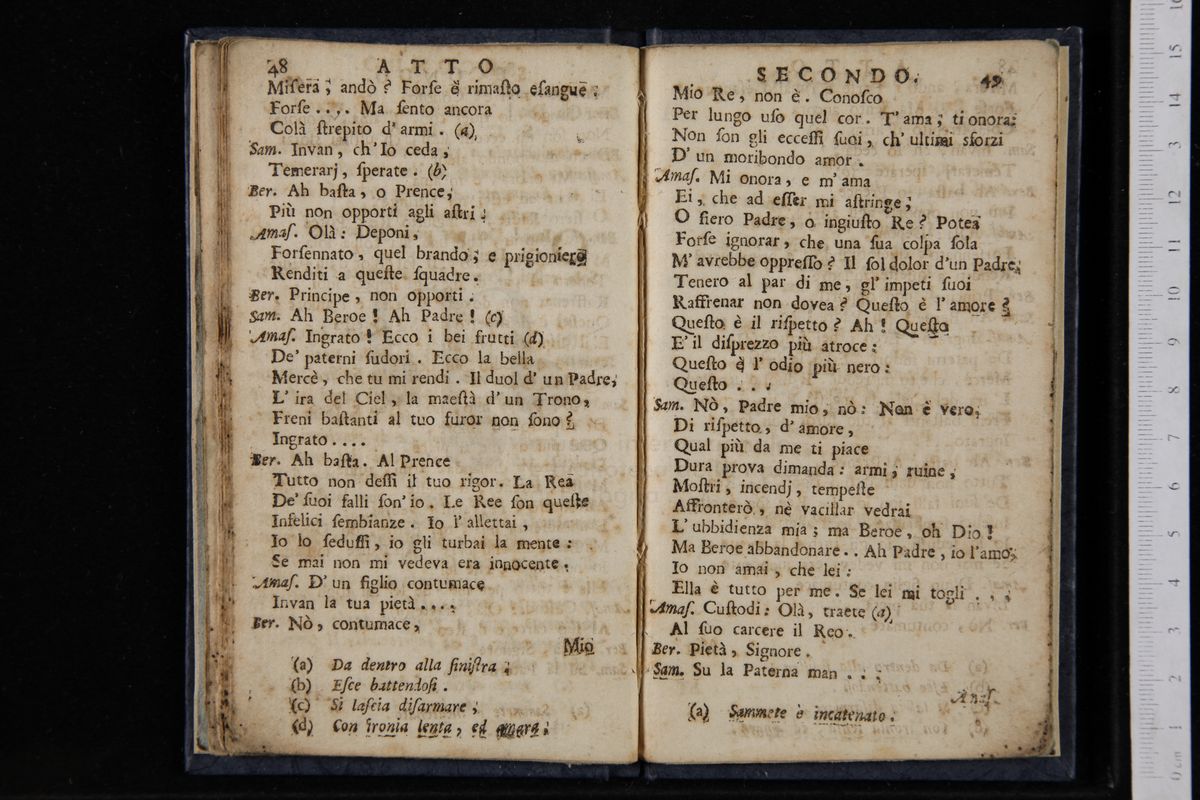 48 ATTO
Miſera; andò? Forſe è rimaſto eſangue;
Forſe .... Ma ſento ancora
Colà ſtrepito d'armi. (a)
Sam. Invan, ch'Io ceda,
Temerarj, ſperate. (b)
Ber. Ah baſta, o Prence,
Più non opporti agli aſtri.
Amaſ. Olà: Deponi,
Forſennato, quel brando; e prigioniero
Renditi a queſte ſquadre.
Ber. Principe, non opporti.
Sam. Ah Beroe! Ah Padre! (c)
Amaſ. Ingrato! Ecco i bei frutti (d)
De' paterni ſudori. Ecco la bella
Mercè, che tu mi rendi. Il duol d'un Padre,
L'ira del Ciel, la maeſtà d'un Trono,
Freni baſtanti al tuo furor non ſono?
Ingrato....
Ber. Ah baſta. Al Prence
Tutto non deſſi il tuo rigor. La Rea
De' ſuoi falli ſon'io. Le Ree ſon queſte
Infelici ſembianze. Io l'allettai,
Io lo ſeduſſi, io gli turbai la mente:
Se mai non mi vedeva era innocente.
Amaſ. D'un figlio contumace
Invan la tua pietà....
Ber. Nò, contumace,
Mio
(a) Da dentro alla ſiniſtra;
(b) Eſce battendoſi.
(c) Si laſcia diſarmare;
(d) Con ironia lenta, ed amara;
SECONDO. 49
Mio Re, non è. Conoſco
Per lungo uſo quel cor. T'ama; ti onora:
Non ſon gli ecceſſi ſuoi, ch'ultimi sforzi
D'un moribondo amor.
Amaſ. Mi onora, e m'ama
Ei, che ad eſſer mi aſtringe,
O fiero Padre, o ingiuſto Re? Potea
Forſe ignorar, che una ſua colpa ſola
M'avrebbe oppreſſo? Il ſol dolor d'un Padre,
Tenero al par di me, gl'impeti ſuoi
Raffrenar non dovea? Queſto è l'amore?
Queſto è il riſpetto? Ah! Queſto
E'il diſprezzo più atroce:
Queſto è l'odio più nero:
Queſto...
Sam. Nò, Padre mio, nò: Non è vero,
Di riſpetto, d'amore,
Qual più da me ti piace
Dura prova dimanda: armi, ruine,
Moſtri, incendj, tempeſte
Affronterò, nè vacillar vedrai
L'ubbidienza mia; ma Beroe, oh Dio!
Ma Beroe abbandonare.. Ah Padre, io l'amo;
Io non amai, che lei:
Ella è tutto per me. Se lei mi togli...
Amaſ. Cuſtodi: Olà, traete (a)
Al ſuo carcere il Reo.
Ber. Pietà, Signore.
Sam. Su la Paterna man...
Amaſ.
(a) Sammete è incatenato.